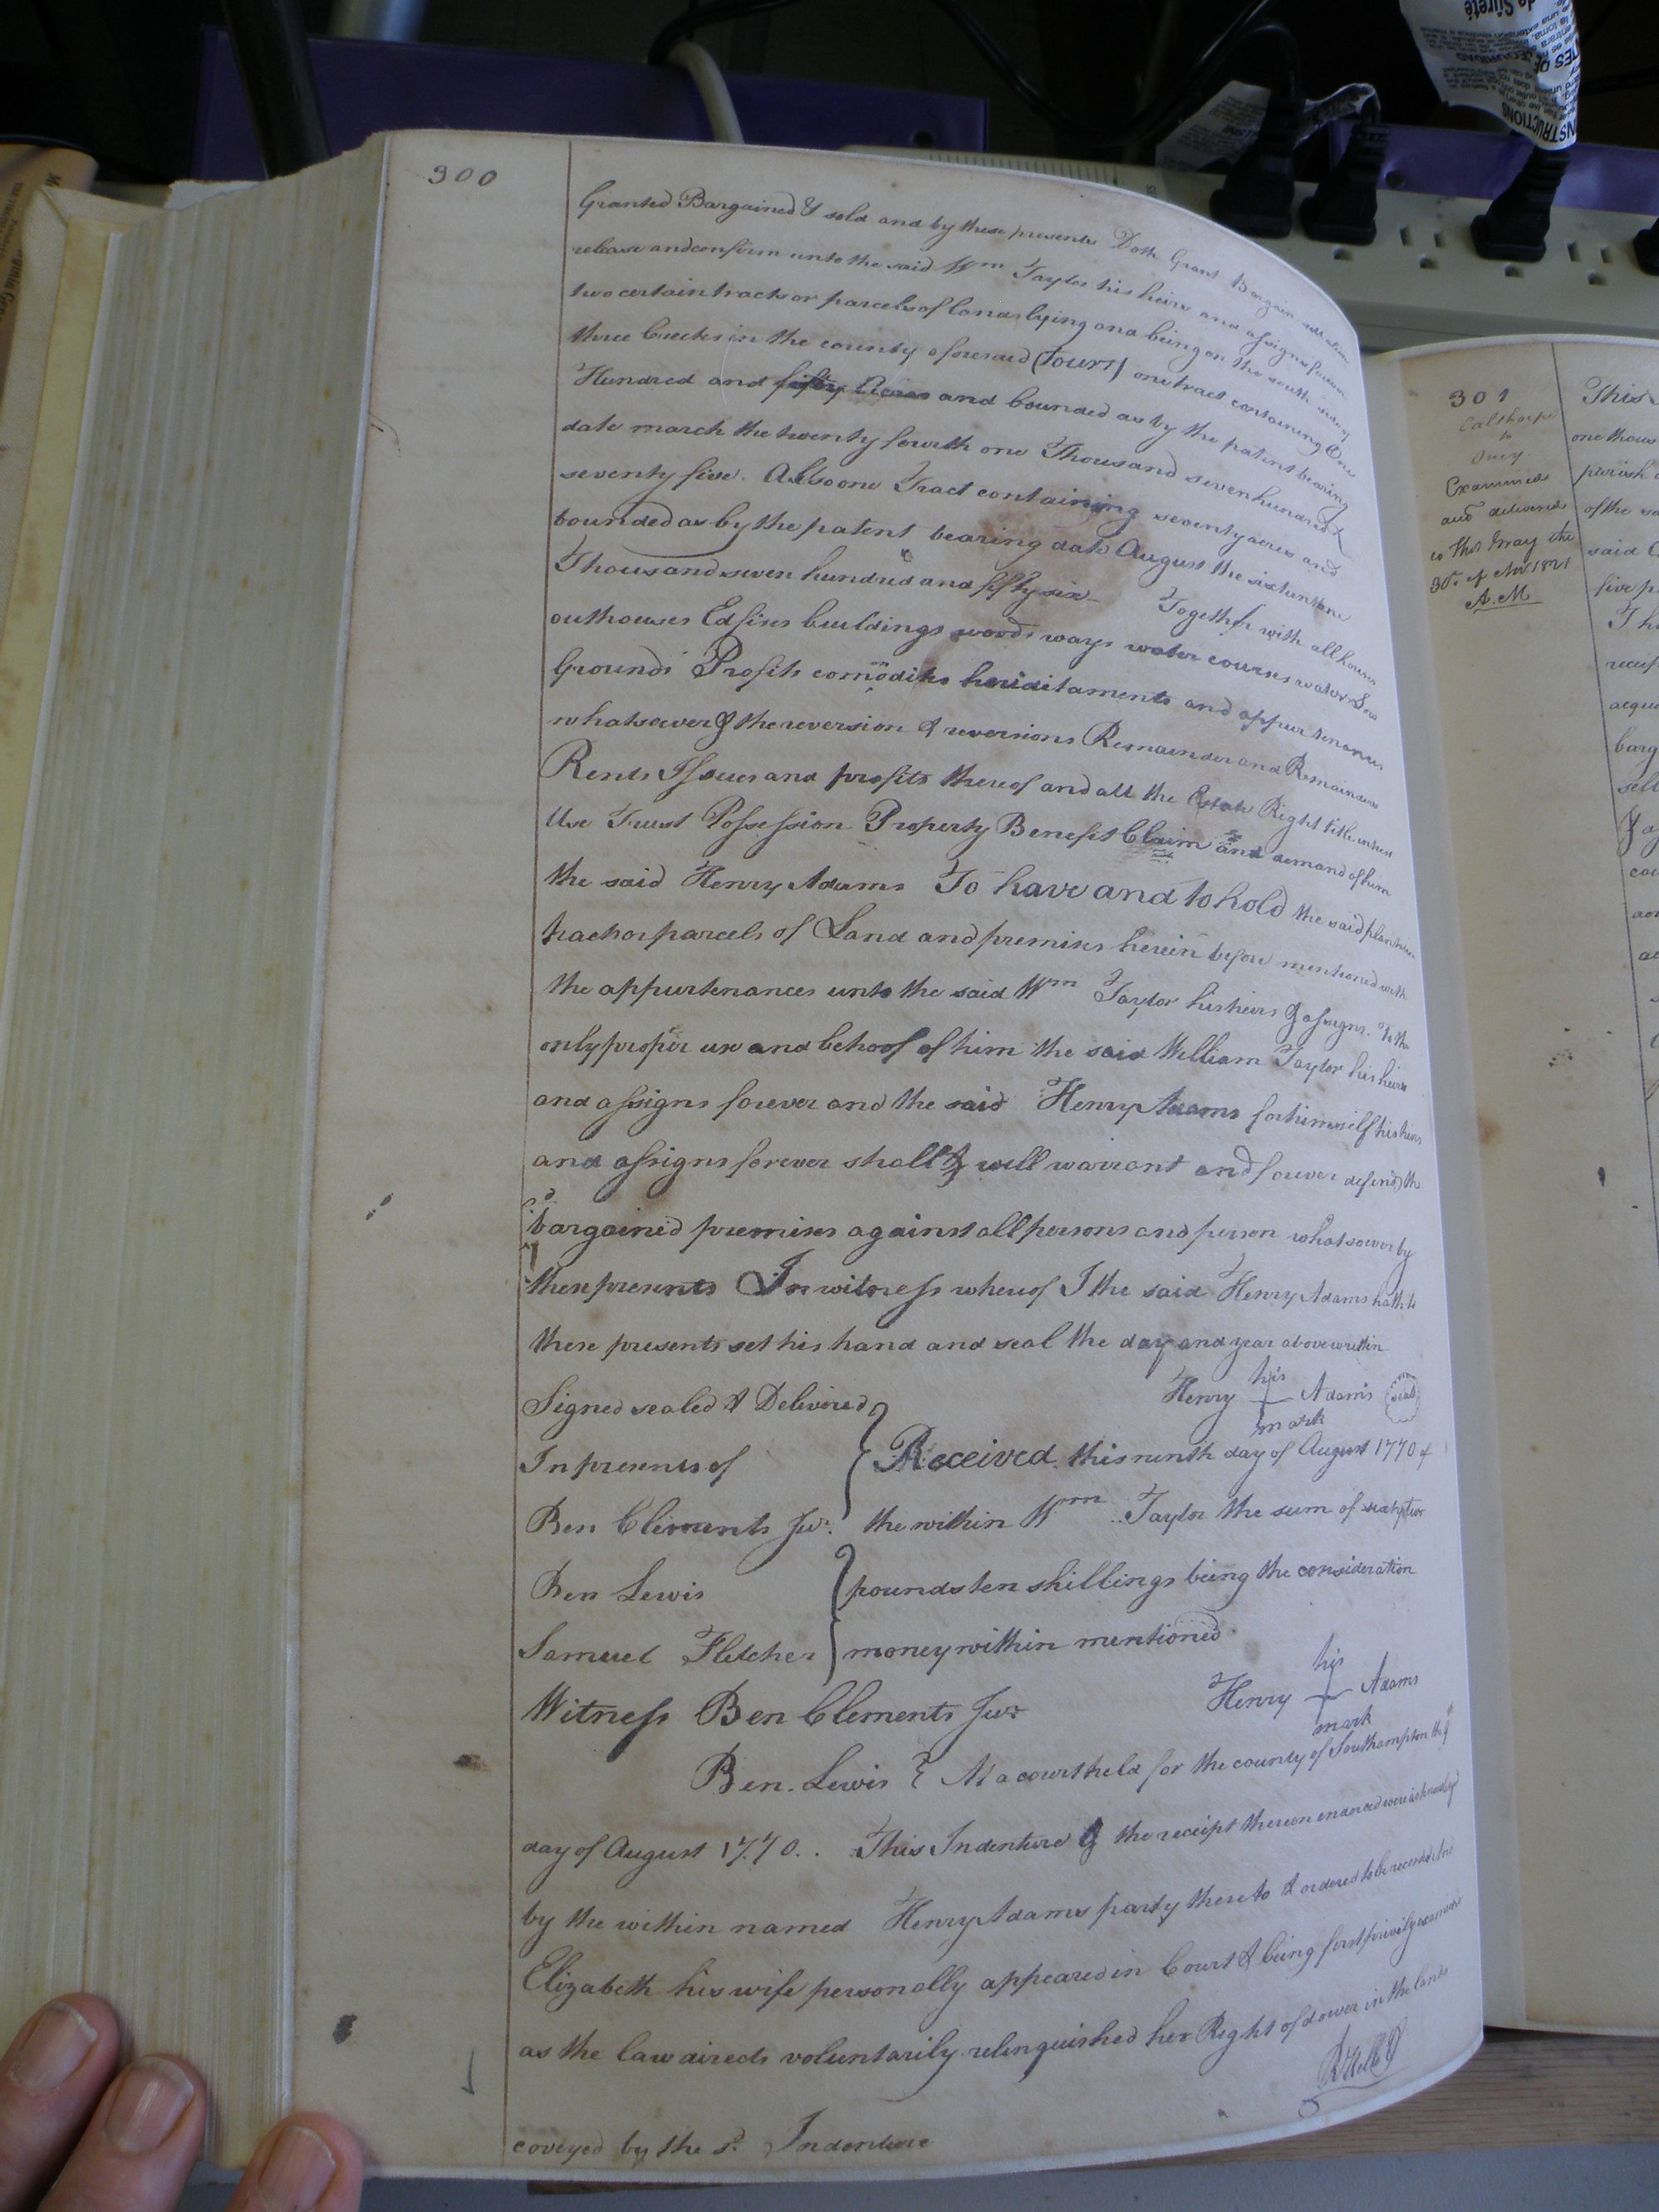 300
Granted Bargained & sold and by these presents Doth Grant Bargain
release and confirm unto the said Wm Taylor his heirs and assigns forever
two certain tracts or parcels of Lands lying and being on the south side of
three Creeks in the county aforesaid (to wit) one tract containing One
Hundred and fifty Acres and bounded as by the patent bearing
date march the twenty fourth one Thousand seven hundred &
seventy five. Also one Tract containing seventy acres and
bounded as by the patent bearing date August the sixteenth one
Thousand seven hundred and fifty six Together with all houses
outhouses Edifises buildings woods ways water courses
Grounds Profits comodities heriditaments and appurtenances
whatsoever & the reversion & reversions Remainder and Remainders
Rents Issues and profits thereof and all the Estate Right title interest
Use Trust Possession Property Benefit Claim and demand of him
the said Henry Adams To have and to hold the said plantation
tract or parcels of Land and premises herein before mentioned with
the appurtenances unto the said Wm Taylor his heirs & assigns. To the
only proper use and behoof of him the said William Taylor his heirs
and assigns forever and the said Henry Adams for himself his heirs
and assigns forever shall & will warrant and forever defend the
bargained premises against all persons and person whatsoever by
these presents In witness whereof I the said Henry Adams hath to
these presents set his hand and seal the day and year above written
Signed sealed & Delivered
In presents of
Ben Clements Jur.
Ben Lewis
Samuel Fletcher
Henry his mark Adams seal
Received this ninth day of August 1770 of
the within Wm Taylor the sum of sixty two
pounds ten shillings being the consideration
money within mentioned
Witness Ben Clements Jur
Henry his mark Adams
Ben. Lewis At a court held for the county of Southampton the 9
day of August 1770.. This Indenture & the receipt thereon endorsed were acknowledged
by the within named Henry Adams party thereto & ordered to be recorded
Elizabeth his wife personally appeared in Court & being first privily examined
as the law directs voluntarily relinquished her Right of dower in the lands
coveyed by the sd. Indenture
301
Calthorpe
to
Examined
and delivered
to Thos Gray the
30th of Nov 1821
A.M
This
one thous
parish
of the
said
five p
Th
receip
acqu
barg
sell